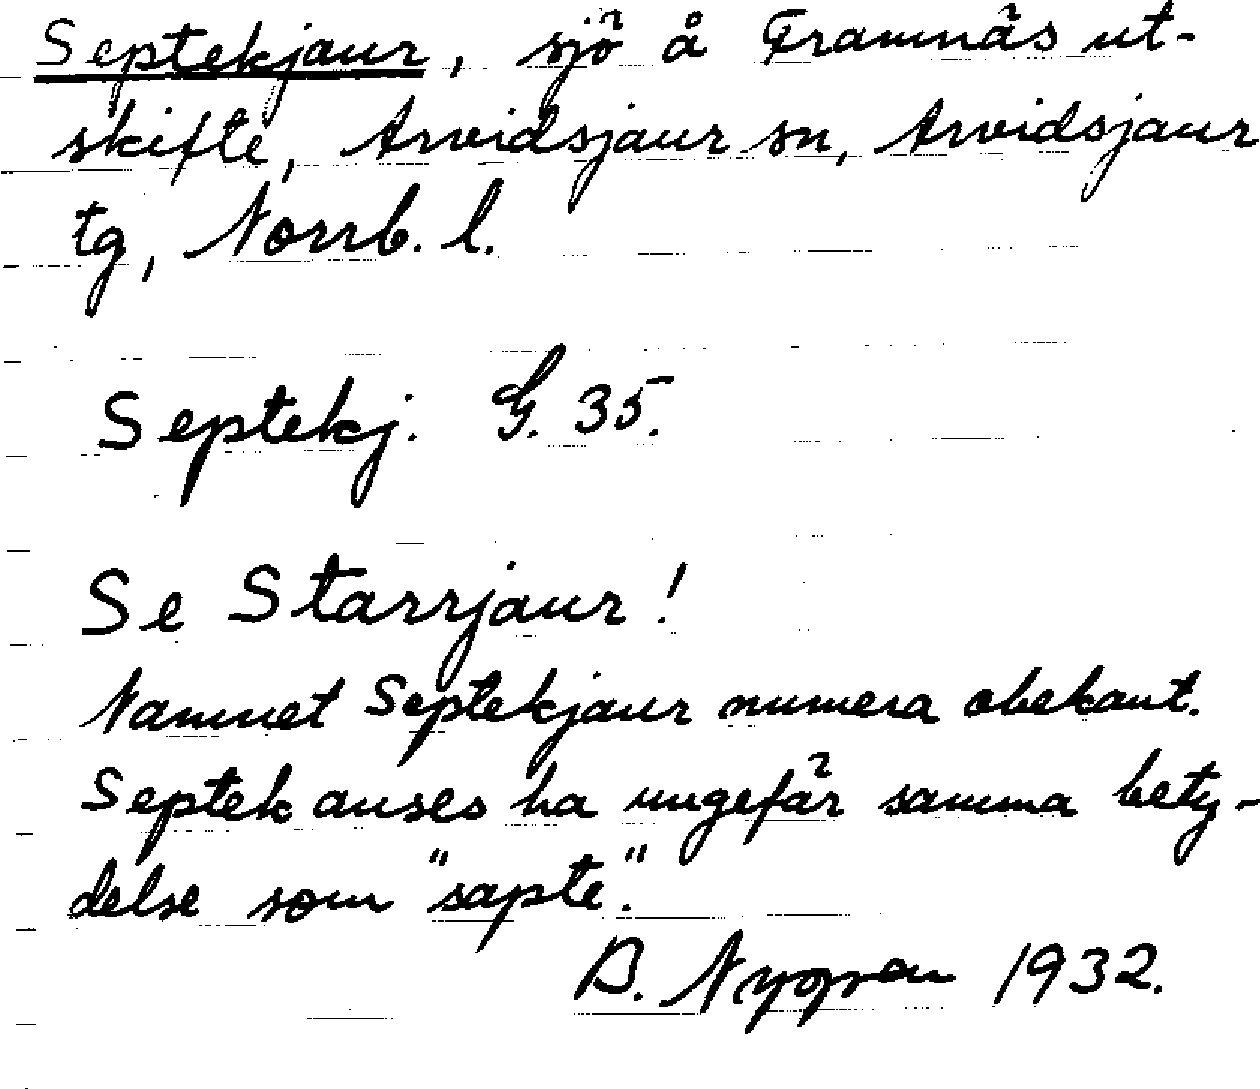 Septekjaur, sjö å Framnäs ut-
skifte, Arvidsjaur sn, Arvidsjaur
tg, Norrb. l.
Septekj. G. 35.
Se Starrjaur!
Namnet Septekjaur numera obekant.
Septek anses ha ungefär samma bety-
delse som "sapte".
1932.